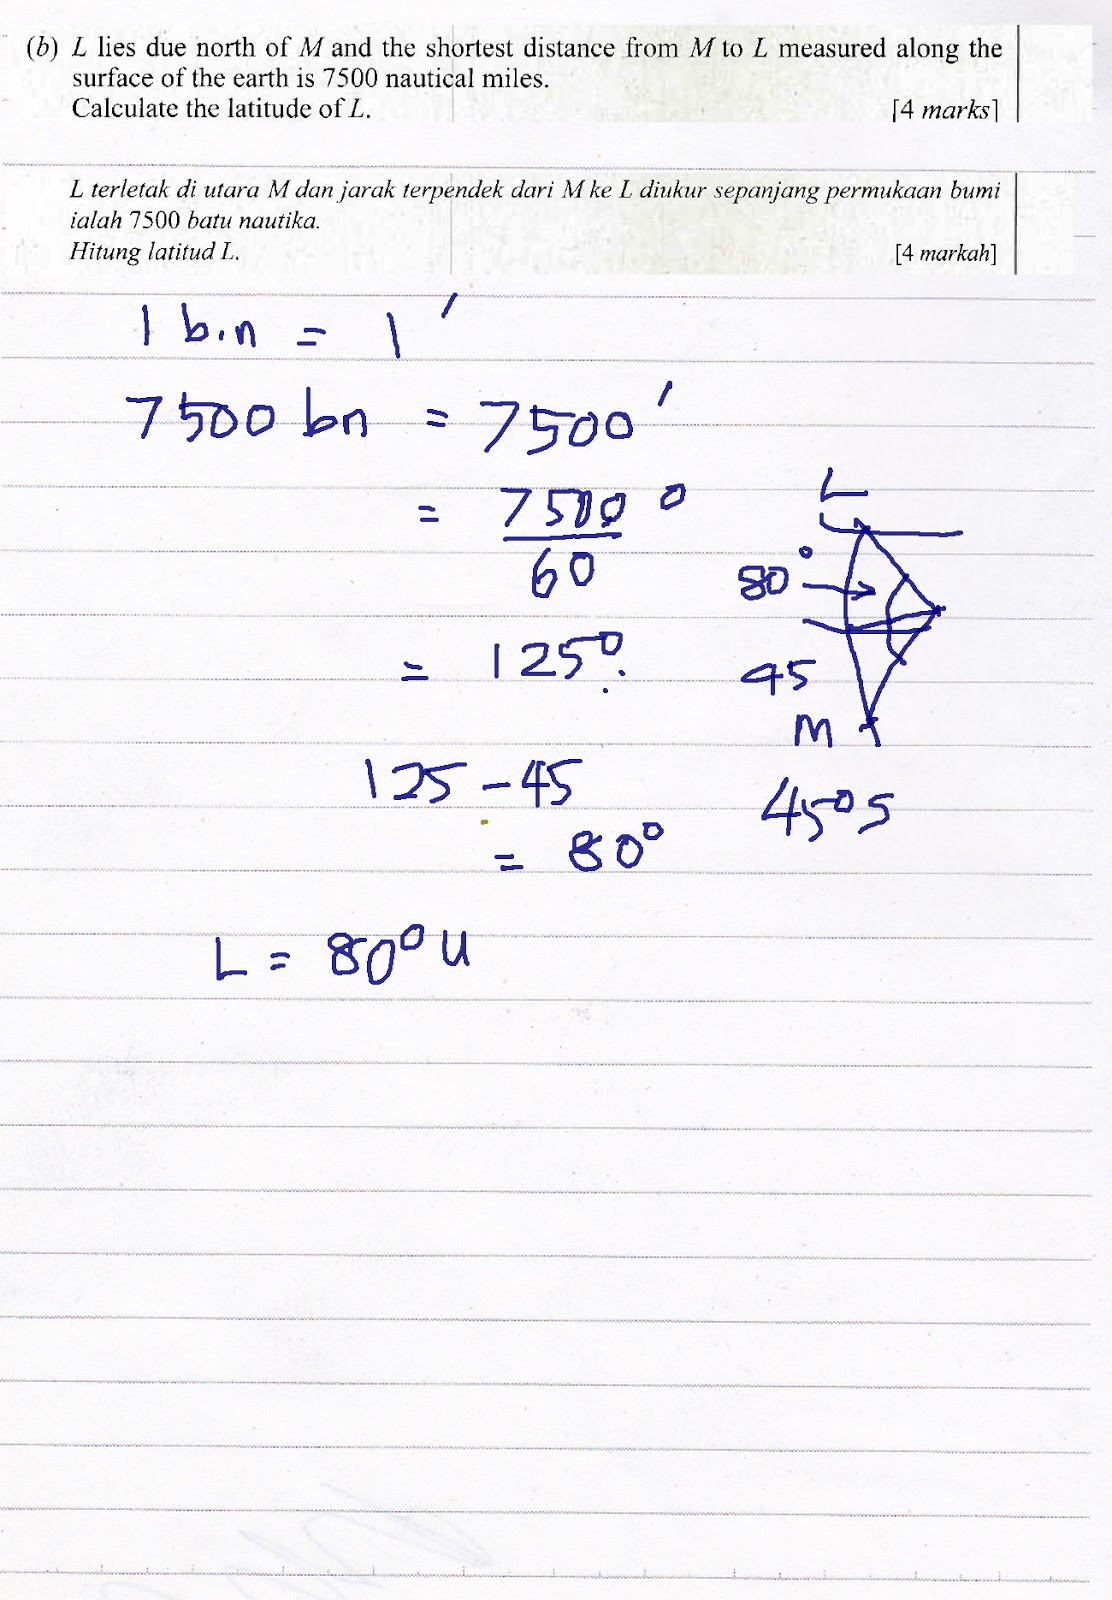 (b) L lies due north of M and the shortest distance from M to L measured along the
surface of the earth is 7500 nautical miles.
Calculate the latitude of L.
[4 marks]
L terletak di utara M dan jarak terpendek dari M ke L diukur sepanjang permukaan bumi
ialah 7500 batu nautika.
Hitung latitud L.
[4 markah]
1 b.n = 1'
7500 bn = 7500'
= 7500°
60
= 125°
125 - 45
= 80°
L = 80° U
L
80°
45
M
45° S